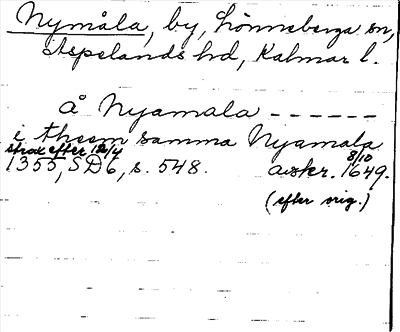 Nymåla, by, Lönneberga sn,
Aspelands hd, Kalmar l.
å Nyamala ------
i them samma Nyamala
strax efter 12/4 8/10
1355, SD6, s. 548. avskr. 1649.
(efter orig.)